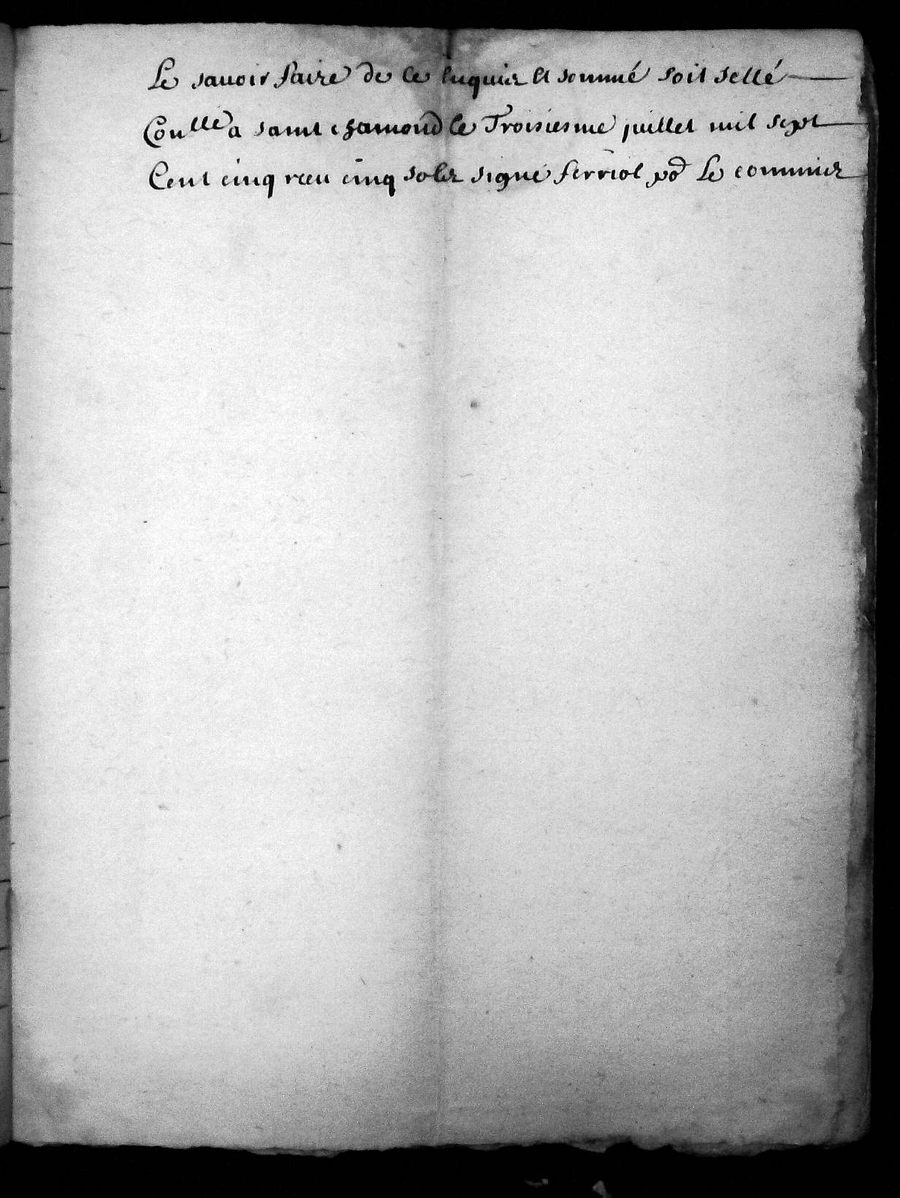 Le savoir faire de ce enquis et sommé soit sellé
Con^lle a saint chamond le Troisiesme juillet mil sept
Cent cinq receu cinq solz signé ferriol po^r Le commis